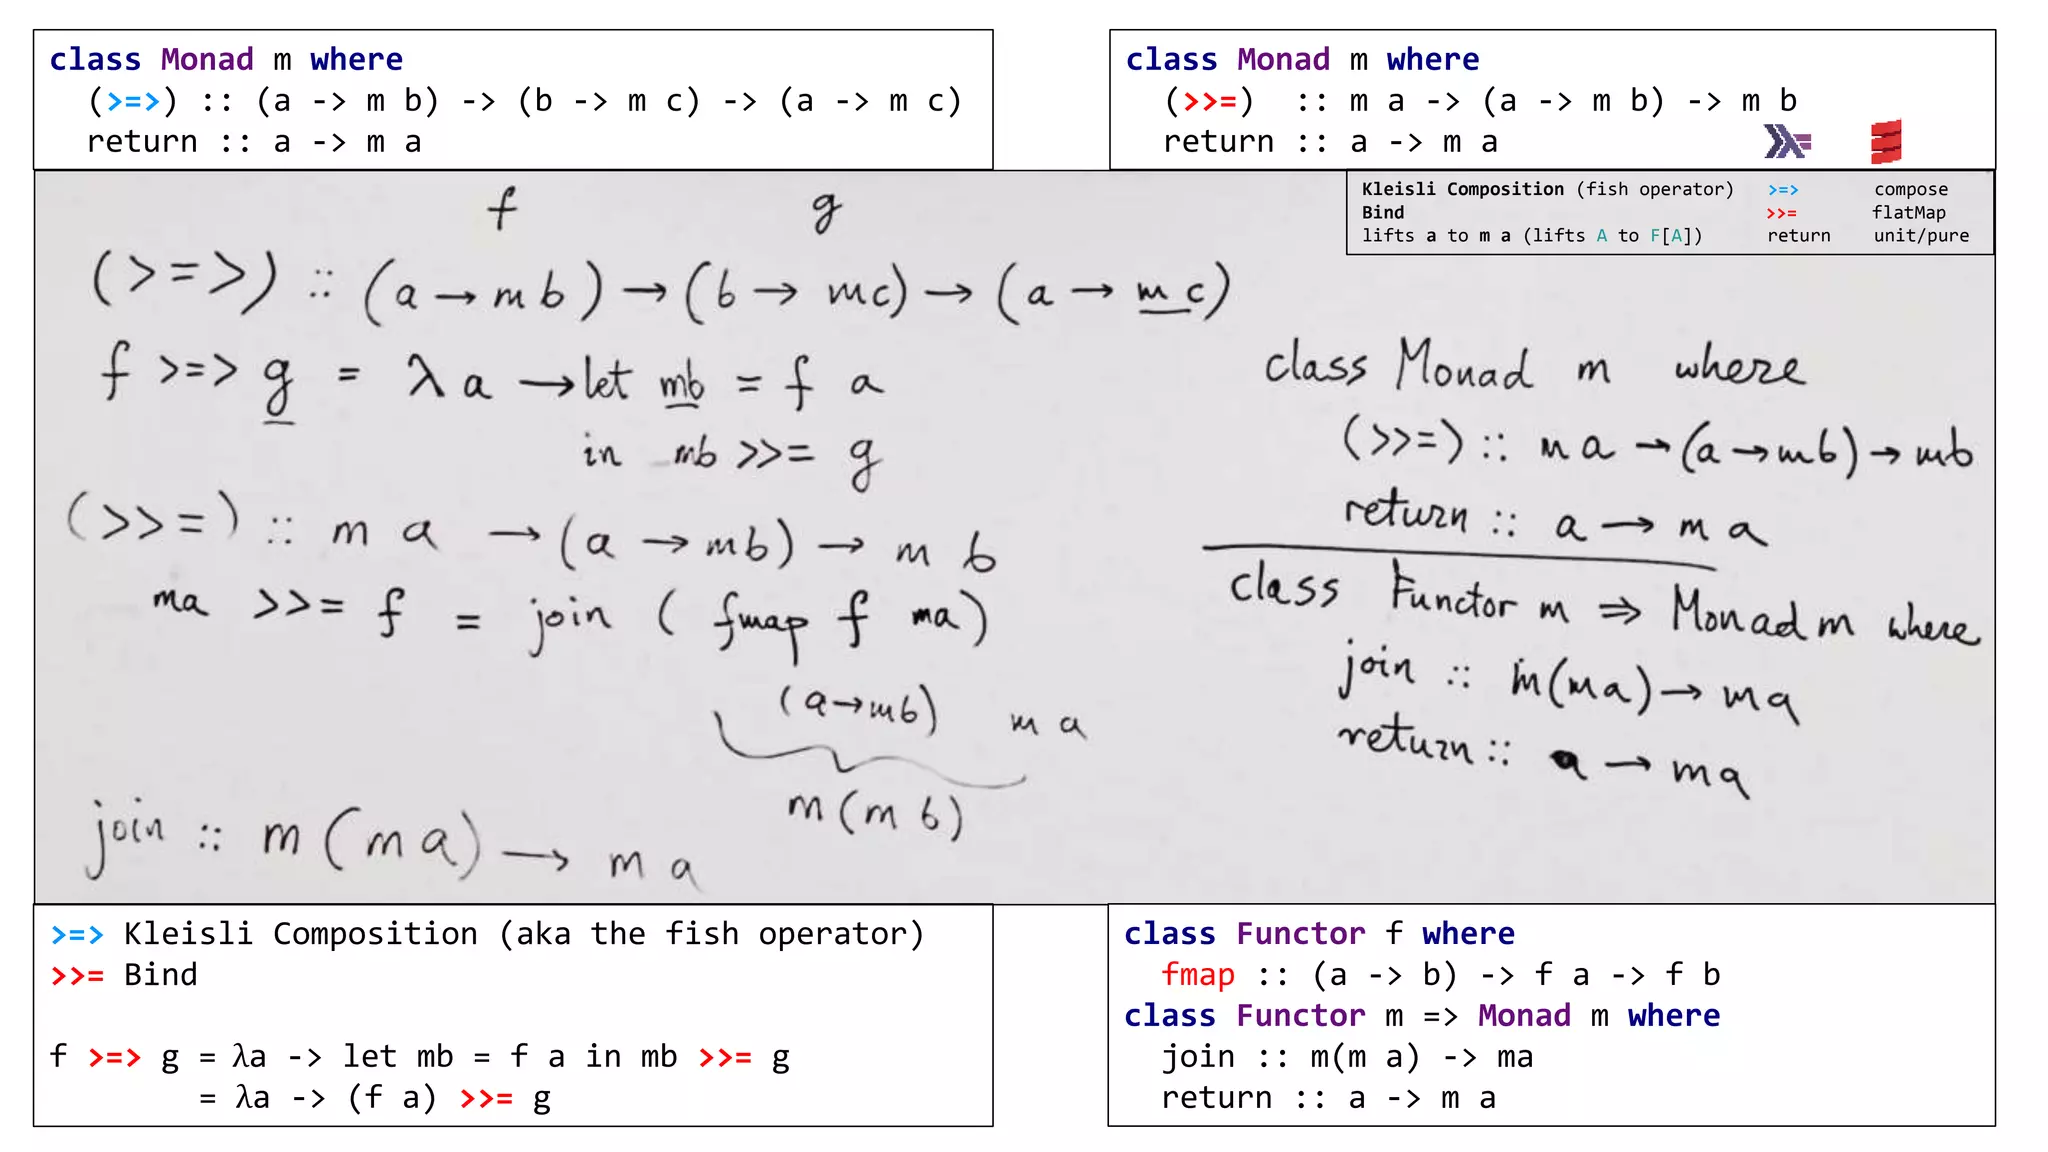 class Monad m where
(>=>) :: (a -> m b) -> (b -> m c) -> (a -> m c)
return :: a -> m a
class Monad m where
(>>=) :: m a -> (a -> m b) -> m b
return :: a -> m a
Kleisli Composition (fish operator) >=> compose
Bind >>= flatMap
lifts a to m a (lifts A to F[A]) return unit/pure
f g
(>=>) :: (a → m b) → (b → mc) → (a → m c)
f >=> g = λ a → let mb = f a
in mb >>= g
(>>=) :: m a → (a → mb) → m b
ma >>= f = join ( fmap f ma)
(a→mb) m a
m(m b)
join :: m (m a) → m a
class Monad m where
(>>=) :: ma → (a→mb) → mb
return :: a → m a
class Functor m => Monad m where
join :: m(ma) → ma
return :: a → ma
>=> Kleisli Composition (aka the fish operator)
>>= Bind
f >=> g = λa -> let mb = f a in mb >>= g
= λa -> (f a) >>= g
class Functor f where
fmap :: (a -> b) -> f a -> f b
class Functor m => Monad m where
join :: m(m a) -> ma
return :: a -> m a